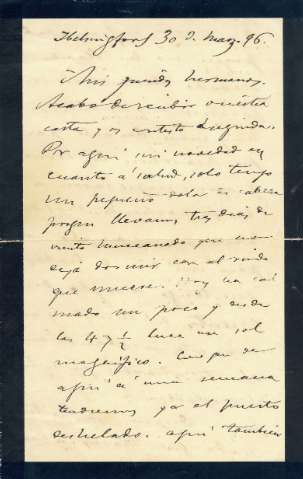 Helsingfors 30 d. Marz. 96.
Mis queridos hermanos.
Acabo de recibir vuestra
carta y os contesto enseguida.
Por aquí sin novedad en
cuanto á salud, solo tengo
un pequeño dolor de cabeza
porque llevamos tres días de
viento huracanado que no
deja dormir con el ruido
que mueve. Hoy ha cal
mado un poco y desde
las 4 y ½ luce un sol
magnífico. Creo que de
aquí á una semana
tendremos ya el puerto
deshelado. Aquí también